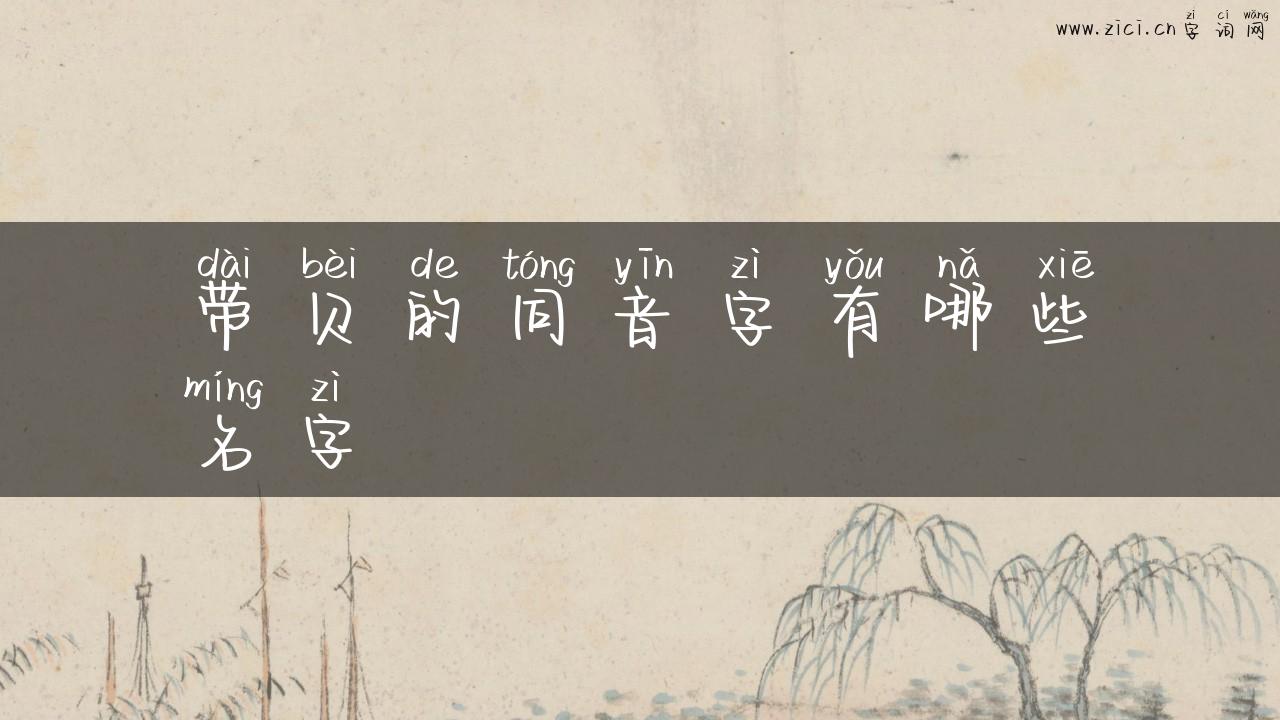 zì cí wǎng
www.zici.cn 字 词 网
dài bèi de tóng yīn zì yǒu nǎ xiē
带 贝 的 同 音 字 有 哪 些
míng zì
名 字